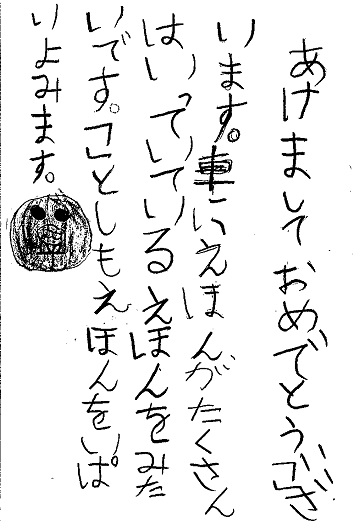 あけましておめでとうござ
います。車にえほんがたくさん
はいっていているえほんをみた
いです。ことしもえほんをいぱ
いよみます。